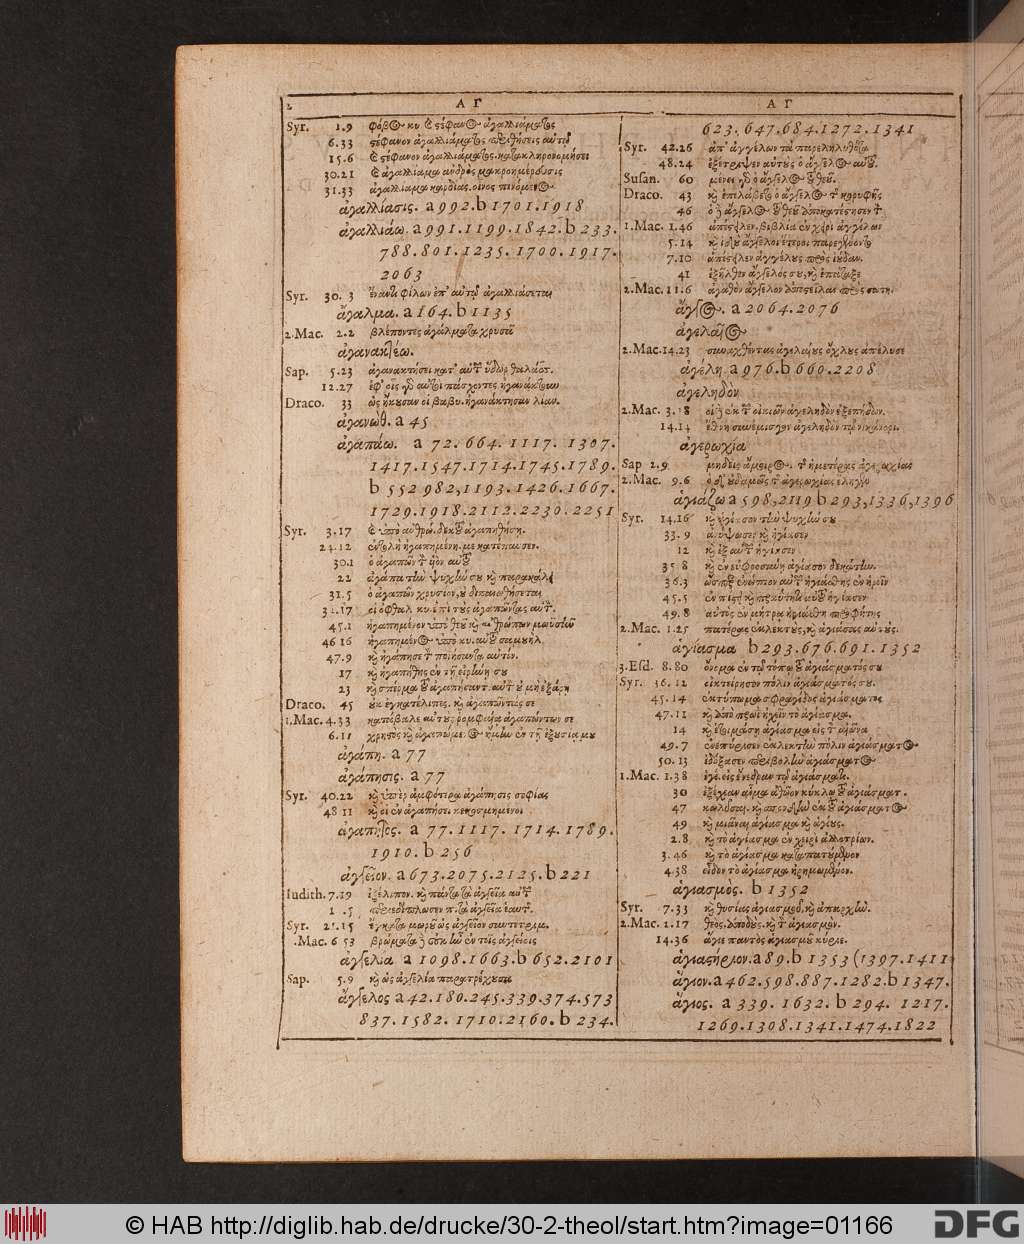 2 ΑΓ ΑΓ
Syr. 1.9 φόβος κυ ἀγαλλιάματος
6.33 στέφανον ἀγαλλιάματος
15.6 στέφανον ἀγαλλιάματος κατακληρονομήσει
30.21 ἀγαλλίαμα ἀνδρὸς μακροημέρευσις
31.33 ἀγαλλίαμα καρδίας. οἶνος πινόμενος
ἀγαλλίασις. a 992. b 1701. 1918
ἀγαλλιάω. a 991. 1199. 1842. b 233.
788. 801. 1235. 1700. 1917.
2063
Syr. 30. 3 ἔναντι φίλων ἐπ' αὐτῷ ἀγαλλιάσεται
ἄγαλμα. a 164. b 1135
2. Mac. 2.2 βλέποντες ἀγάλματα χρυσᾶ
ἀγανακτέω.
Sap. 5.23 ἀγανακτήσει κατ' αὐτῶν ὕδωρ θαλάσ.
12.27 ἐφ' οἷς πάσχοντες ἠγανάκτουν
Draco. 33 ὡς ἤκουσαν οἱ βαβυ. ἠγανάκτησαν λίαν.
ἀγανώθ. a 45
ἀγαπάω. a 72. 664. 1117. 1307.
1417. 1547. 1714. 1745. 1789.
b 552 982, 1193. 1426. 1667.
1729. 1918. 2112. 2230. 2251
Syr. 3.17 ἀγαπηθήσῃ.
24.12 ἠγαπημένῃ. με κατέπαυσεν.
30.1 ὁ ἀγαπῶν τὸν υἱὸν αὐτοῦ
22 ἀγάπα τὴν ψυχήν σου καὶ παρακάλει
31.5 ὁ ἀγαπῶν χρυσίον, οὐ δικαιωθήσεται
οἱ ὀφθαλ. κυ. ἐπὶ τοὺς ἀγαπῶντας αὐτ.
45.1 ἠγαπημένον ὑπὸ θεοῦ καὶ ἀνθρώπων μωϋσῆν
46 16 ἠγαπημένος ὑπὸ κυ. αὐτοῦ σαμουήλ.
47.9 καὶ ἠγάπησε τὸν ποιήσαντα αὐτόν.
17 καὶ ἠγαπήθης ἐν τῇ εἰρήνῃ σου
23 καὶ σπέρμα τοῦ ἀγαπήσαντ. αὐτὸν οὐ μὴ ἐξάρῃ
Draco. 45 οὐκ ἐγκατέλιπες. καὶ ἀγαπῶντάς σε
1. Mac. 4.33 κατάβαλε αὐτοὺς ῥομφαίᾳ ἀγαπώντων σε
6.11 χρηστὸς καὶ ἀγαπώμενος ἤμην ἐν τῇ ἐξουσίᾳ μου
ἀγάπη. a 77
ἀγάπησις. a 77
Syr. 40.22 καὶ ὑπὲρ ἀμφότερα ἀγάπησις σοφίας
48 11 καὶ οἱ ἐν ἀγαπήσει κεκοσμημένοι
ἀγαπητός. a 77. 1117. 1714. 1789.
1910. b 256
ἀγγεῖον. a 673. 2075. 2125. b 221
Iudith. 7.19 ἐξέλιπον. καὶ πάντα τὰ ἀγγεῖα αὐτ
Syr. 21.15 ἔγκατα μωροῦ ὡς ἀγγεῖον συντετριμ.
. Mac. 6 53 βρώματα ἐν τοῖς ἀγγείοις
ἀγγελία a 1098. 1663. b 652. 2101
Sap. 5.9 καὶ ὡς ἀγγελία παρατρέχουσα
ἄγγελος a 42. 180. 245. 339. 374. 573
837. 1582. 1710. 2160. b 234.
623. 647. 684. 1272. 1341
Syr. 42.26 ἀπ' ἀγγέλων
48.24 ἐξέτριψεν αὐτοὺς ὁ ἄγγελος αὐτοῦ.
Susan. 60 μένει γὰρ ὁ ἄγγελος τοῦ θεοῦ.
Draco. 43 καὶ ἐπιλάβετο ὁ ἄγγελος τ κορυφῆς
46 ὁ δὲ ἄγγελος τοῦ θεοῦ ἀποκατέστησεν τ
1. Mac. 1.46 ἀπέστειλεν. βιβλία ἐν χειρὶ ἀγγέλων
5.14 καὶ ἰδοὺ ἄγγελοι ἕτεροι παρεγένοντο
7.10 ἀπέστειλεν ἀγγέλους πρὸς ἰούδαν.
41 ἐξῆλθεν ἄγγελός σου, καὶ ἐπάταξε
2. Mac. 11.6 ἀγαθὸν ἄγγελον ἀποστεῖλαι πρὸς σωτη.
ἄγγος. a 2064. 2076
ἀγελαῖος
2. Mac. 14.23 συναχθέντας ἀγελαίους ὄχλους ἀπέλυσε
ἀγέλη. a 976. b 660. 2208
ἀγεληδὸν
2. Mac. 3.18 οἱ δὲ ἐκ τ οἰκιῶν ἀγεληδὸν ἐξεπήδων.
14.14 ἔθνη συνέμισγον ἀγεληδὸν τῷ νικάνορι.
ἀγερωχία
Sap 2.9 μηδεὶς ἄμοιρος. τ ἡμετέρας ἀγερωχίας
2. Mac. 9.6 ὁ δ' οὐδαμῶς τ ἀγερωχίας ἔληγε
ἁγιάζω a 598, 2119 b 293, 1336, 1396
Syr. 14.16
33.9 ἀνύψωσε καὶ ἡγίασεν
12 καὶ ἐξ αὐτῶν ἡγίασεν
35.8 καὶ ἐν εὐφροσύνῃ ἁγίασον δεκάτην.
36.3 ὥσπερ ἐνώπιον αὐτῶν ἡγιάσθης ἐν ἡμῖν
45.5 ἐν πίστει καὶ πραΰτητι αὐτοῦ ἡγίασεν
49.8 αὐτὸς ἐν μήτρᾳ ἡγιάσθη προφήτης
2. Mac. 1.25 πατέρας ἐκλεκτοὺς, καὶ ἁγιάσας αὐτούς.
ἁγίασμα b 293. 676. 691. 1352
3. Esd. 8.80 τοῦ ἁγιάσματός σου
Syr. 36.12 οἰκτείρησον πόλιν ἁγιάσματός σου.
45.14 ἐκτύπωμα σφραγῖδος ἁγιάσματος
47.11 καὶ ἀπὸ πρωῒ ἠχεῖν τὸ ἁγίασμα.
14 καὶ ἑτοιμάσῃ ἁγίασμα εἰς τὸν αἰῶνα
49.7 ἐνεπύρισεν ἐκλεκτὴν πόλιν ἁγιάσματος
50.13 ἐδόξασεν περιβολὴν ἁγιάσματος
1. Mac. 1.38 ἐγέ. εἰς ἔνεδρον τῷ ἁγιάσματι.
30 ἐξέχεαν αἷμα ἀθῶον κύκλῳ τοῦ ἁγιάσματ.
47 κωλῦσαι ἐκ τοῦ ἁγιάσματος
49 καὶ μιᾶναι ἁγίασμα καὶ ἁγίους.
2.8 καὶ τὸ ἁγίασμα ἐν χειρὶ ἀλλοτρίων.
3.46 καὶ τὸ ἁγίασμα καταπατούμενον
4.38 εἶδον τὸ ἁγίασμα ἠρημωμένον.
ἁγιασμὸς. b 1352
Syr. 7.33 καὶ θυσίας ἁγιασμοῦ, καὶ ἀπαρχὴν.
2. Mac. 2.17 θεός. ἀποδοὺς. καὶ τ ἁγιασμὸν.
14.36 ἅγιε παντὸς ἁγιασμοῦ κύριε.
ἁγιαστήριον. a 89. b 1353 (1397. 1411
ἅγιον. a 462. 598. 887. 1282. b 1347.
ἅγιος. a 339. 1632. b 294. 1217.
1269. 1308. 1341. 1474. 1822
© HAB http://diglib.hab.de/drucke/30-2-theol/start.htm?image=01166 DFG